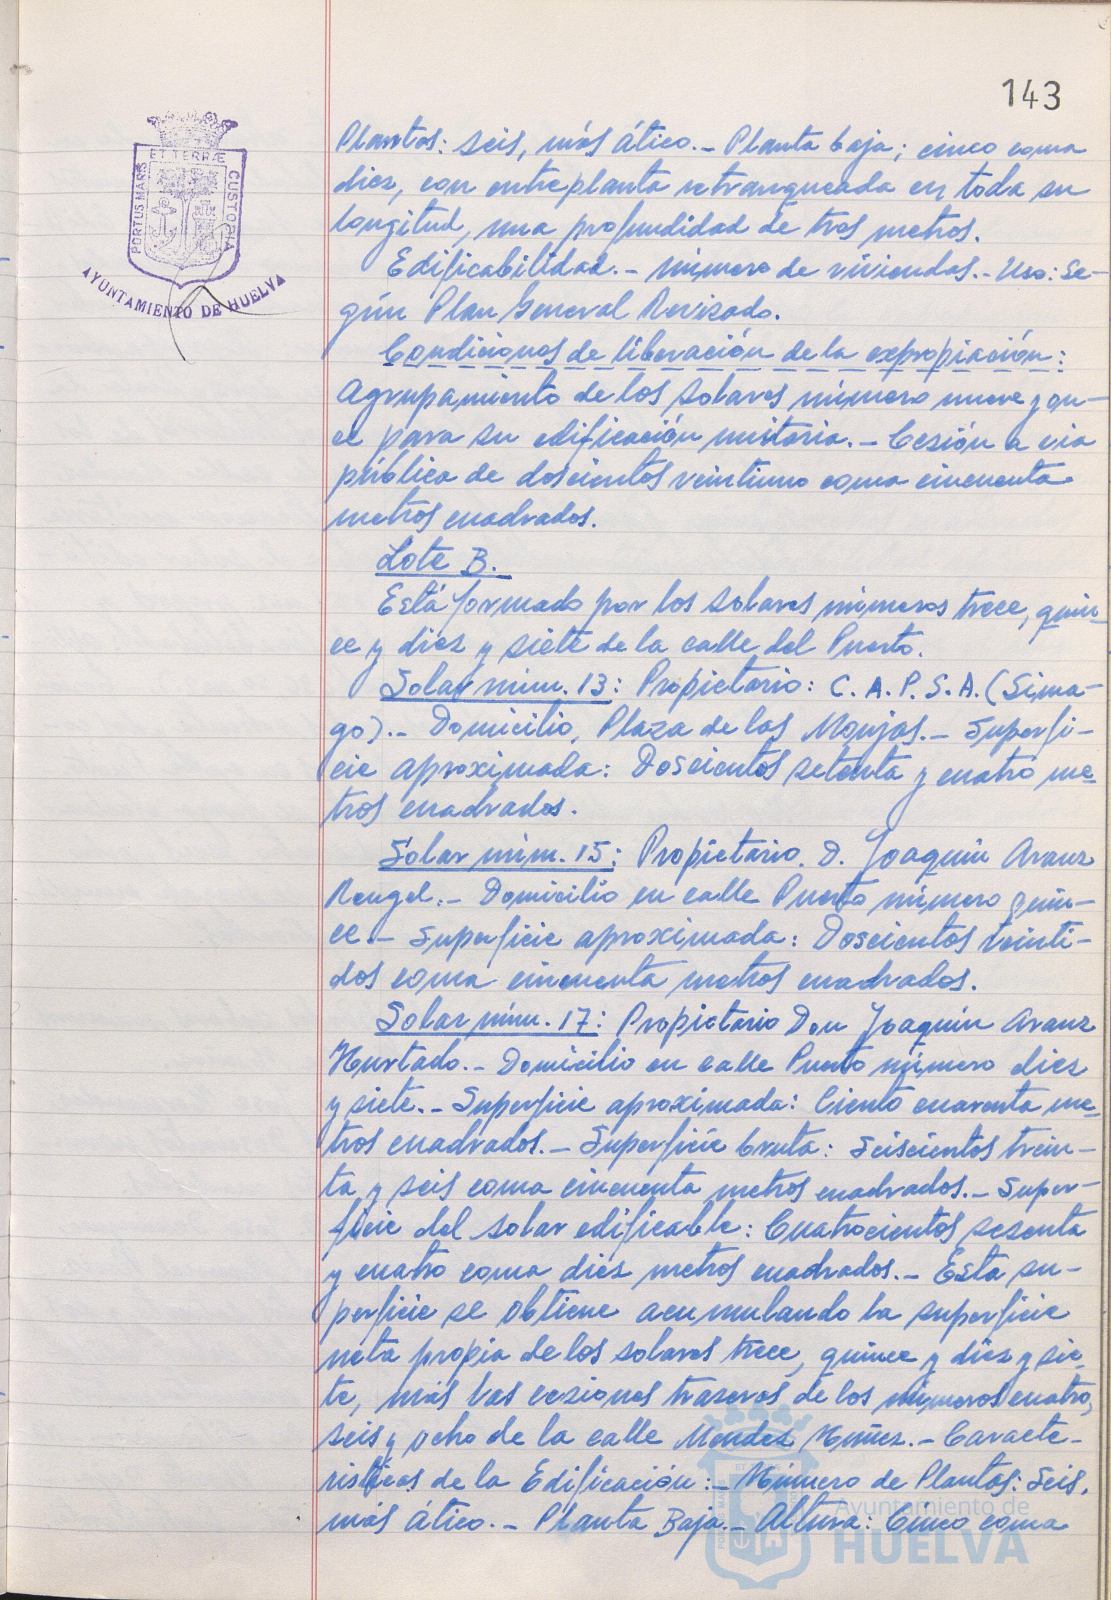 143
PORTUS MARIS
ET TERRÆ
CUSTODIA
AYUNTAMIENTO DE HUELVA
Plantas: seis, más ático.- Planta baja; cinco coma
diez, con entreplanta retranqueada en toda su
longitud, una profundidad de tres metros.
Edificabilidad.- número de viviendas.- Uso: Se-
gún Plan General Revisado.
Condiciones de liberación de la expropiación:
Agrupamiento de los solares número nueve y on-
ce para su edificación unitaria.- Cesión a via
pública de doscientos veintiuno coma cincuenta
metros cuadrados.
Lote B.
Está formado por los solares números trece, quin-
ce y diez y siete de la calle del Puerto.
Solar núm. 13: Propietario: C. A. P. S. A. (Sima-
go).- Domicilio, Plaza de las Monjas.- Superfi-
cie aproximada: Doscientos setenta y cuatro me-
tros cuadrados.
Solar núm. 15: Propietario. D. Joaquin Aranz
Rengel.- Domicilio en calle Puerto número quin-
ce.- Superficie aproximada: Doscientos veinti-
dos coma cincuenta metros cuadrados.
Solar núm. 17: Propietario Don Joaquin Aranz
Hurtado.- Domicilio en calle Puerto número diez
y siete.- Superficie aproximada: Ciento cuarenta me-
tros cuadrados.- Superficie bruta: Seiscientos trein-
ta y seis coma cincuenta metros cuadrados.- Super-
ficie del solar edificable: Cuatrocientos sesenta
y cuatro coma diez metros cuadrados.- Esta su-
perficie se obtiene acumulando la superficie
neta propia de los solares trece, quince y diez y sie-
te, más las cesiones traseras de los números cuatro,
seis y ocho de la calle Mendez Nuñez.- Caracte-
risticas de la Edificación:- Número de Plantas: Seis,
más ático.- Planta Baja.- Altura: Cinco coma
Ayuntamiento de
HUELVA